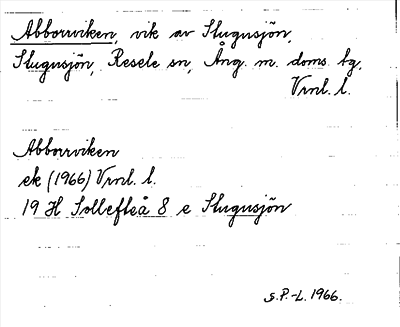 Abborrviken, vik av Stugusjön,
Stugusjön, Resele sn, Ång. m. doms. tg.
Vrnl. l.
Abborrviken
ek (1966) Vrnl. l.
19 H Sollefteå 8 e Stugusjön
S.P.-L. 1966.